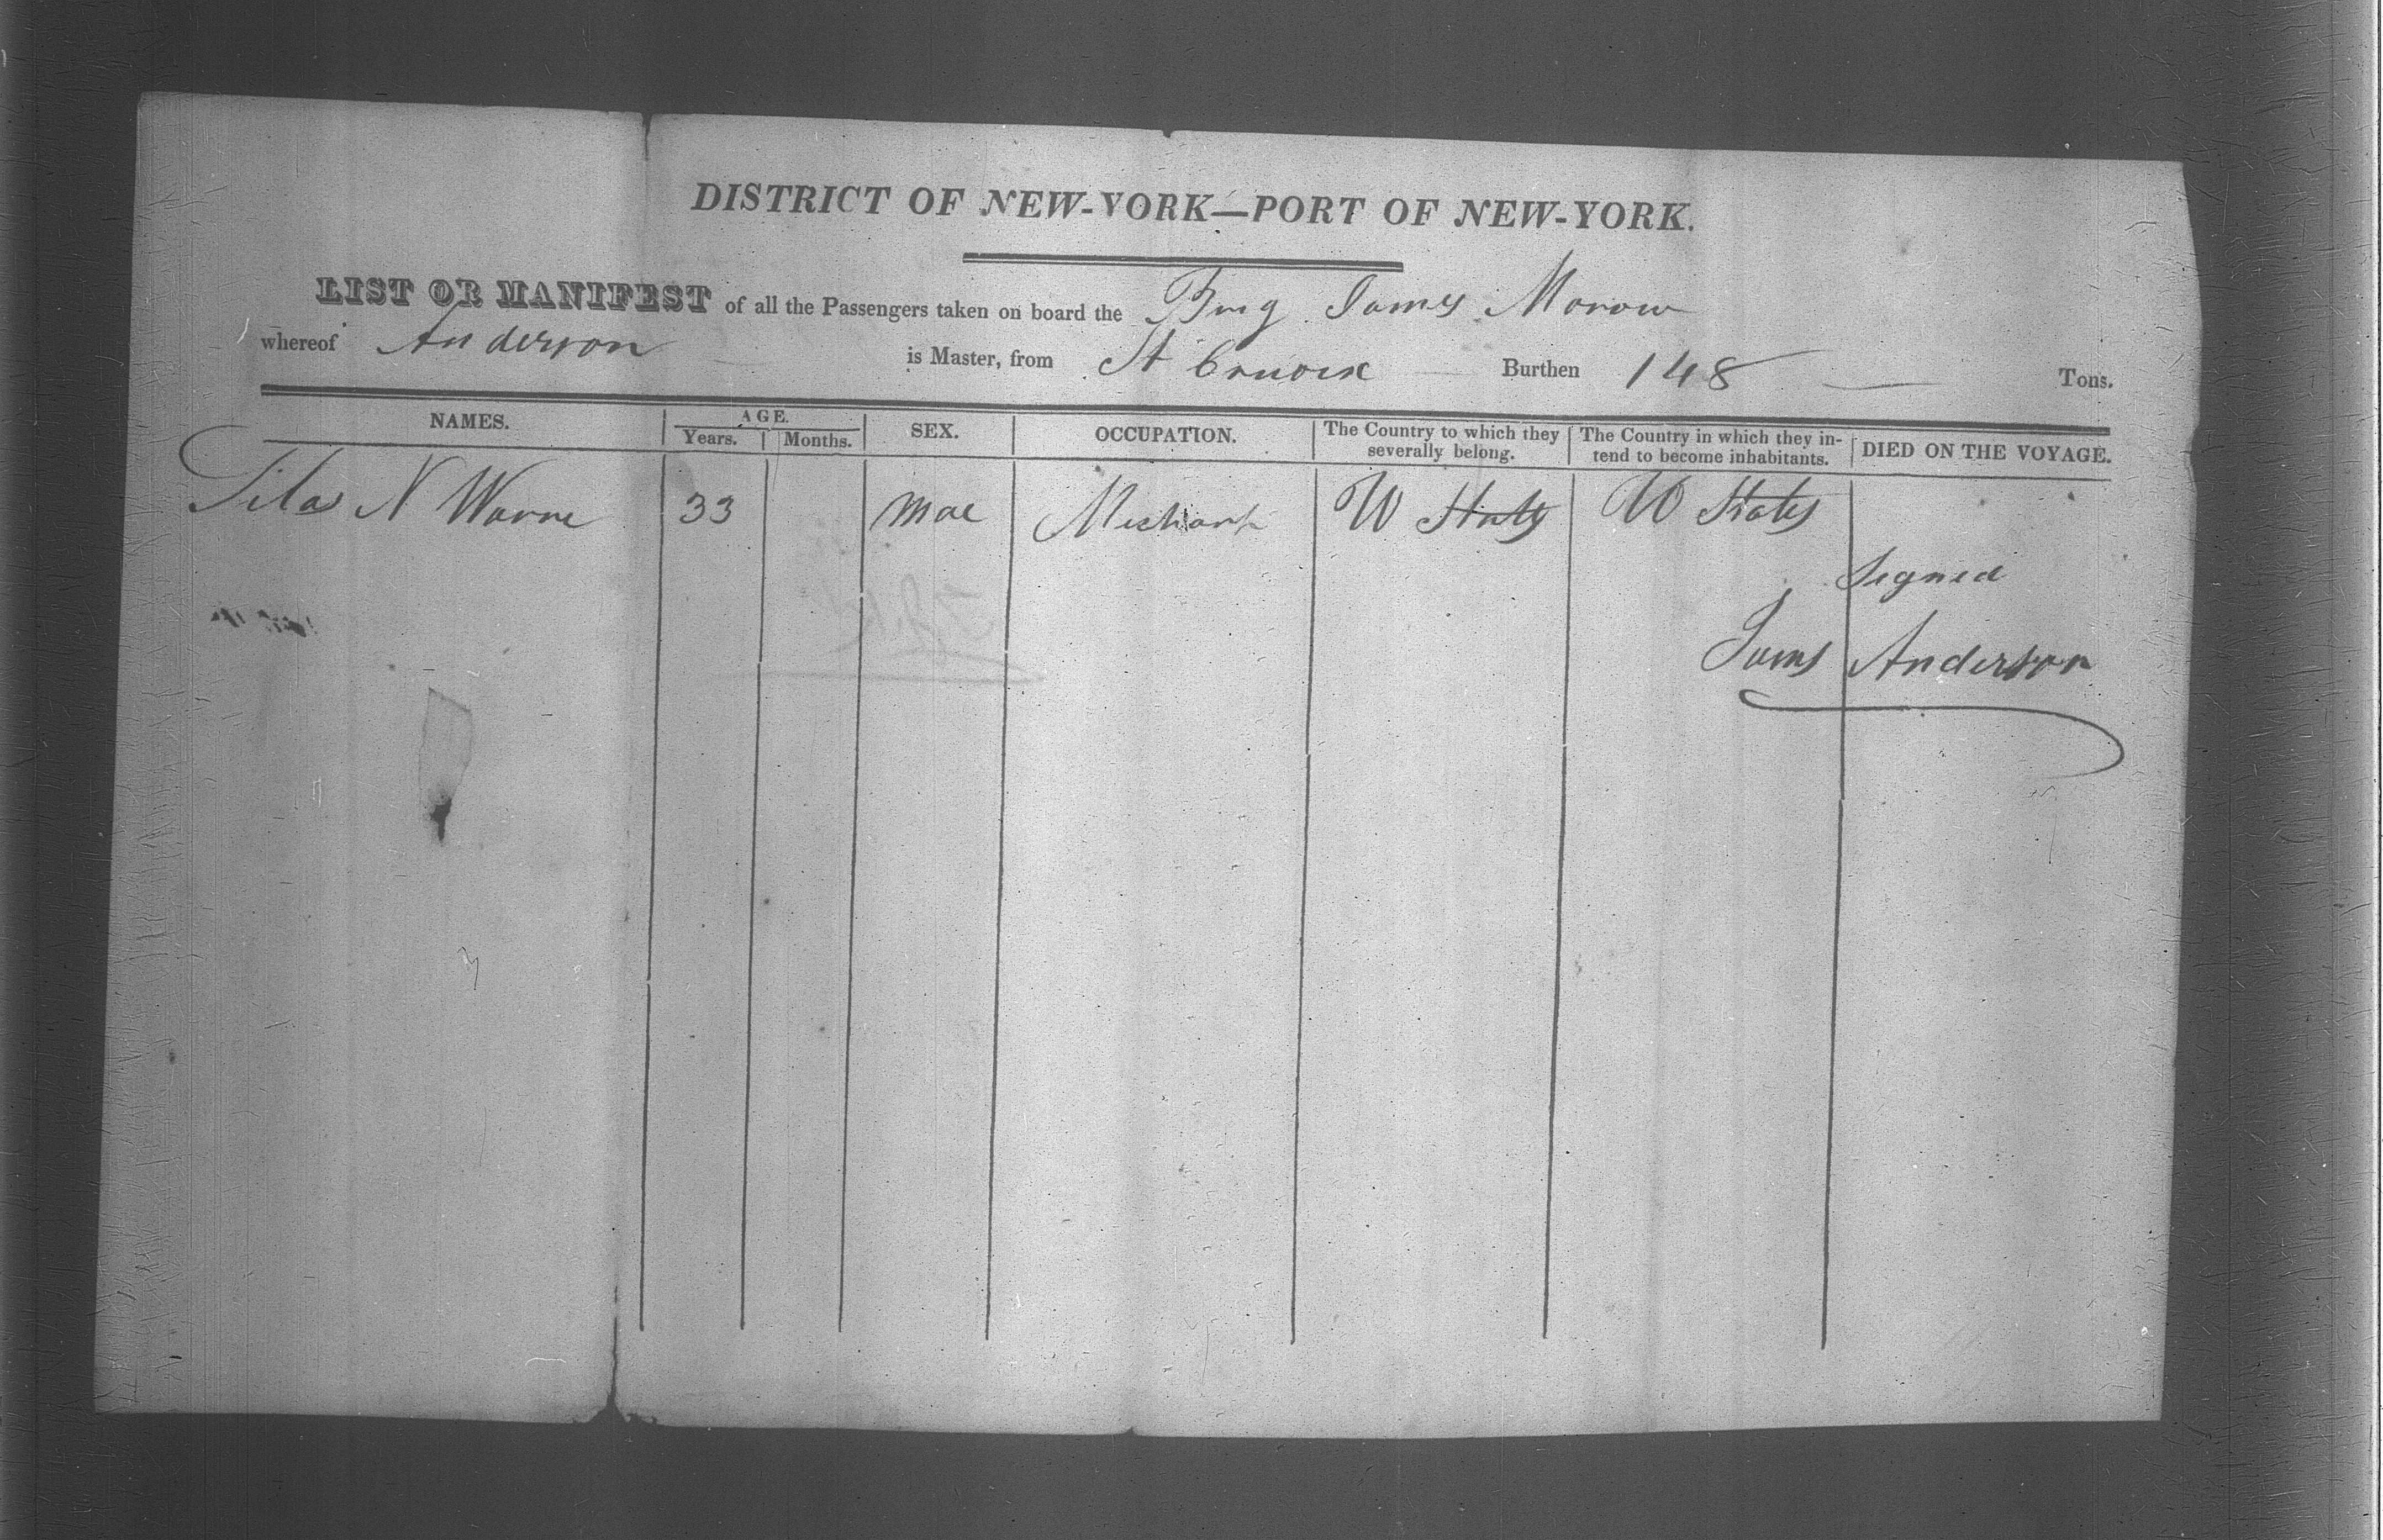 DISTRICT OF NEW-YORK—PORT OF NEW-YORK.
LIST OR MANIFEST of all the Passengers taken on board the Brig James Morow
whereof Anderson is Master, from St Cruoix Burthen 148 Tons.
NAMES. AGE. Years. Months. SEX. OCCUPATION. The Country to which they severally belong. The Country in which they intend to become inhabitants. DIED ON THE VOYAGE.
Silas N Warne 33 Mae Mechant U States U States
Signed
Jams Anderson